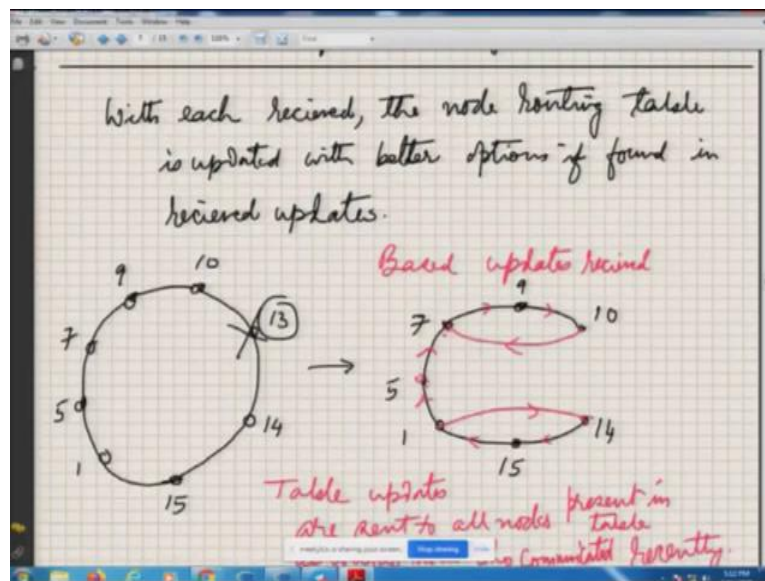 File Edit View Document Tools Window Help
With each recieved, the node Routing table
is updated with better options if found in
recieved updates.
Based updates recieved
9
10
13
7
5
1
14
15
9
7
10
5
1
14
15
Table updates
are sent to all nodes present in table
communicated recently.
Stop sharing
Hide
5:52 PM